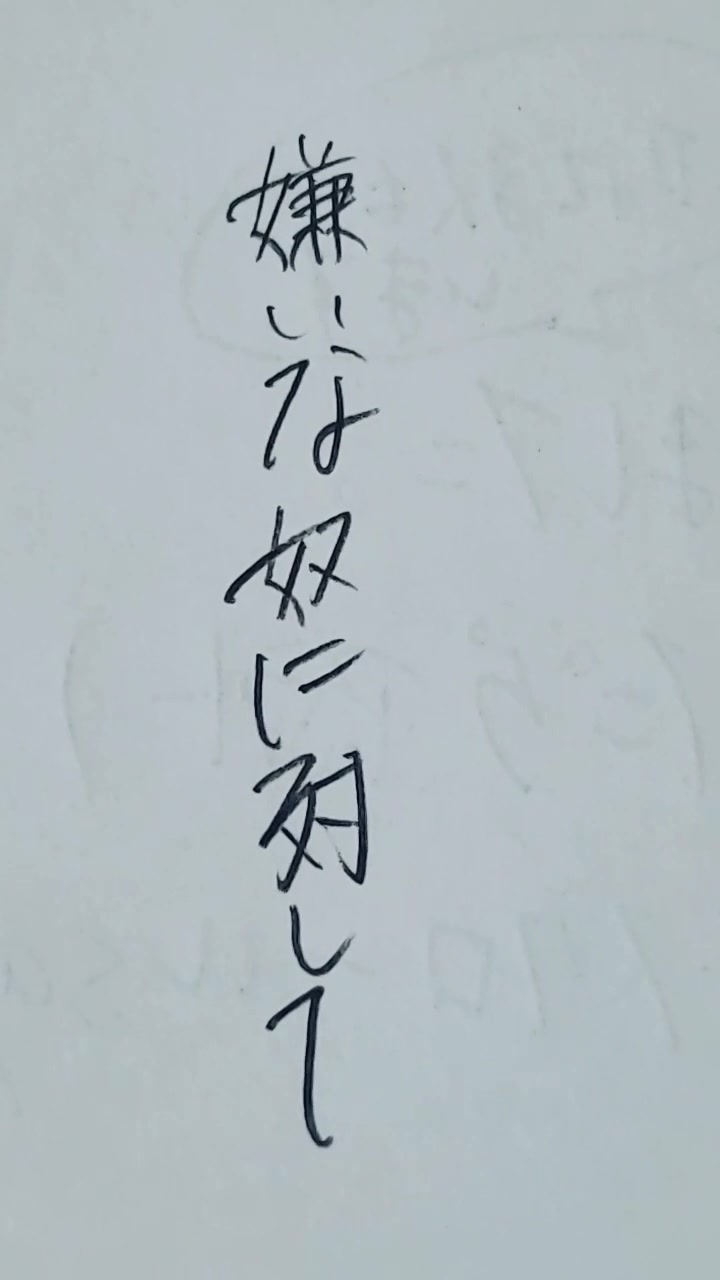 嫌いな奴に対して